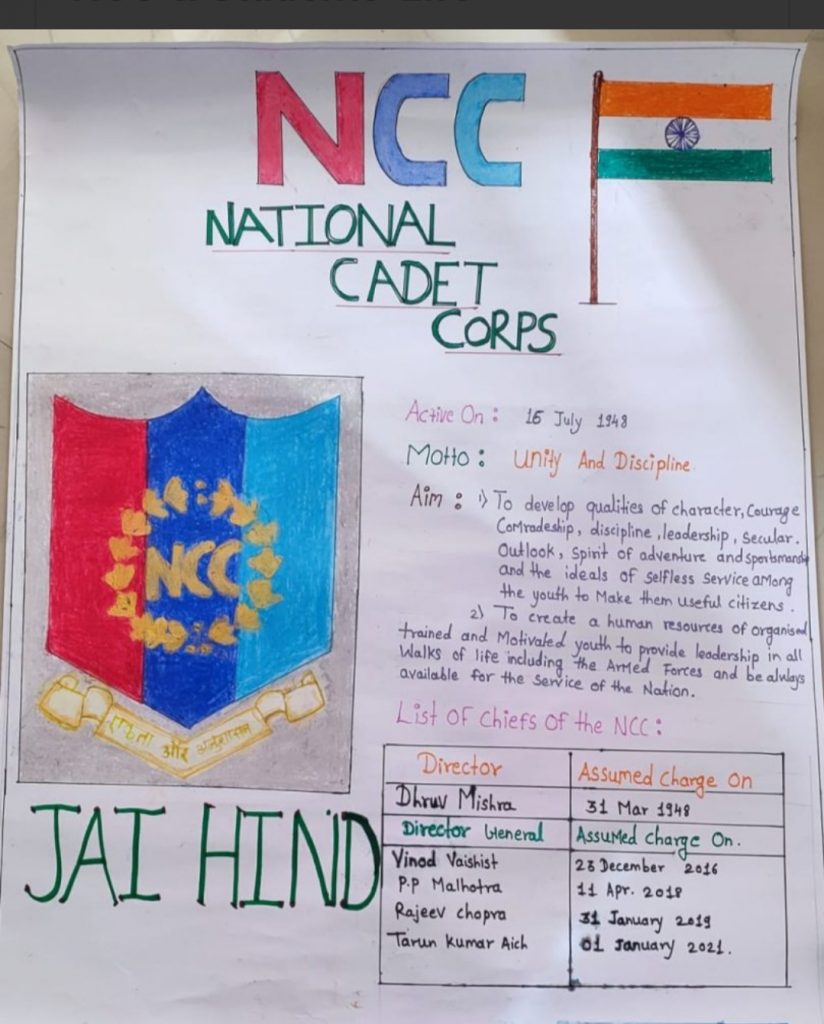 NCC
NATIONAL
CADET
CORPS
NCC
एकता और अनुशासन
JAI HIND
Active On : 15 July 1948
Motto : Unity And Discipline
Aim : 1) To develop qualities of character, Courage
Comradeship, discipline, leadership, Secular.
Outlook, Spirit of adventure and sportsmanship
and the ideals of Selfless Service among
the youth to Make them useful citizens.
2) To create a human resources of organised
trained and Motivated youth to provide leadership in all
Walks of life including the Armed Forces and be always
available for the Service of the Nation.
List of chiefs of the NCC :
Director Assumed Charge On
Dhruv Mishra 31 Mar 1948
Director General Assumed Charge On.
Vinod Vaishist 23 December 2016
P.P Malhotra 11 Apr. 2018
Rajeev chopra 31 January 2019
Tarun Kumar Aich 01 January 2021.